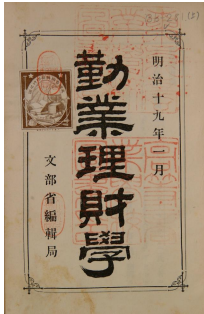 明治十九年一月
勤業理財學
文部省編輯局